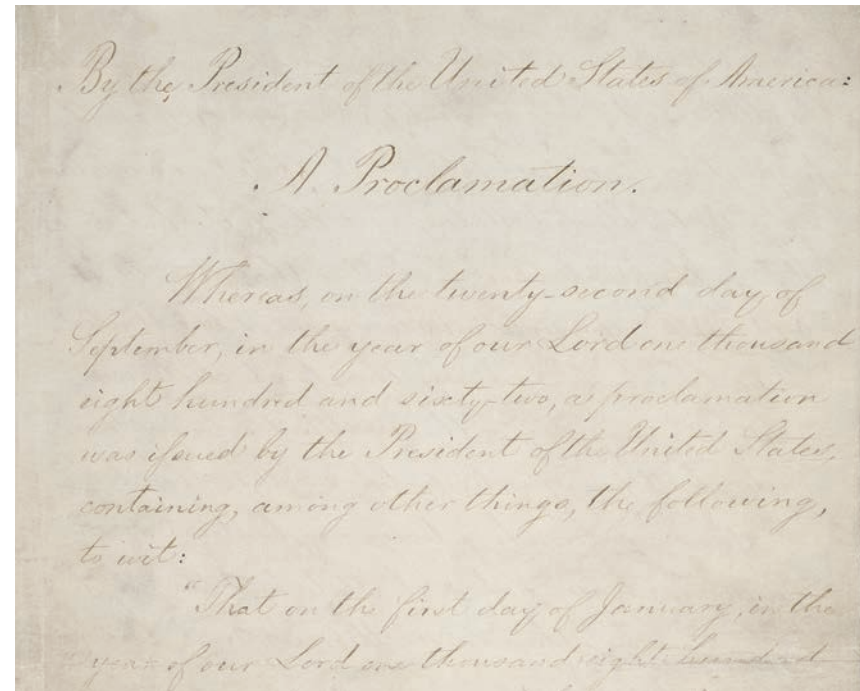 By the President of the United States of America:
A Proclamation.
Whereas, on the twenty-second day of
September, in the year of our Lord one thousand
eight hundred and sixty-two, a proclamation
was issued by the President of the United States,
containing, among other things, the following,
to wit:
"That on the first day of January, in the
year of our Lord one thousand eight hundred